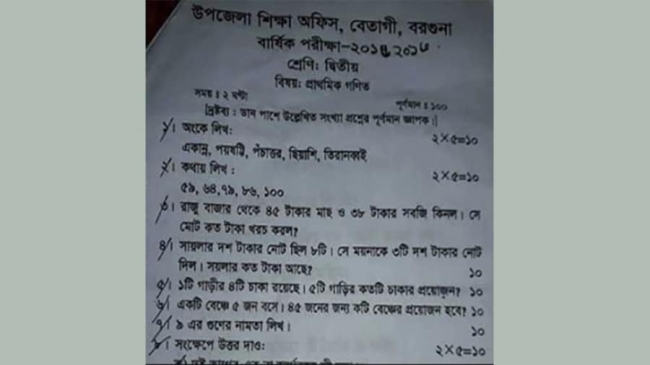 উপজেলা শিক্ষা অফিস, বেতাগী, বরগুনা
বার্ষিক পরীক্ষা-২০১৪
শ্রেণি: দ্বিতীয়
বিষয়: প্রাথমিক গণিত
সময় : ২ ঘন্টা পূর্ণমান : ১০০
[দ্রষ্টব্য : ডান পাশে উল্লেখিত সংখ্যা প্রশ্নের পূর্ণমান জ্ঞাপক।]
১। অংকে লিখ: ২×৫=১০
একান্ন, পয়ষট্টি, পঁচাত্তর, ছিয়াশি, তিরানব্বই
২। কথায় লিখ : ২×৫=১০
৫৯, ৬৪,৭৯, ৮৬, ১০০
৩। রাজু বাজার থেকে ৪৫ টাকার মাছ ও ৩৮ টাকার সবজি কিনল। সে
মোট কত টাকা খরচ করল?
৪। সায়লার দশ টাকার নোট ছিল ৮টি। সে ময়নাকে ৩টি দশ টাকার নোট
দিল। সয়লার কত টাকা আছে? ১০
৫। ১টি গাড়ীর ৪টি চাকা রয়েছে। ৫টি গাড়ির কতটি চাকার প্রয়োজন? ১০
৬। একটি বেঞ্চে ৫ জন বসে। ৪৫ জনের জন্য কটি বেঞ্চের প্রয়োজন হবে? ১০
৭। ৯ এর গুণের নামতা লিখ। ১০
৮। সংক্ষেপে উত্তর দাও: ২×৫=১০